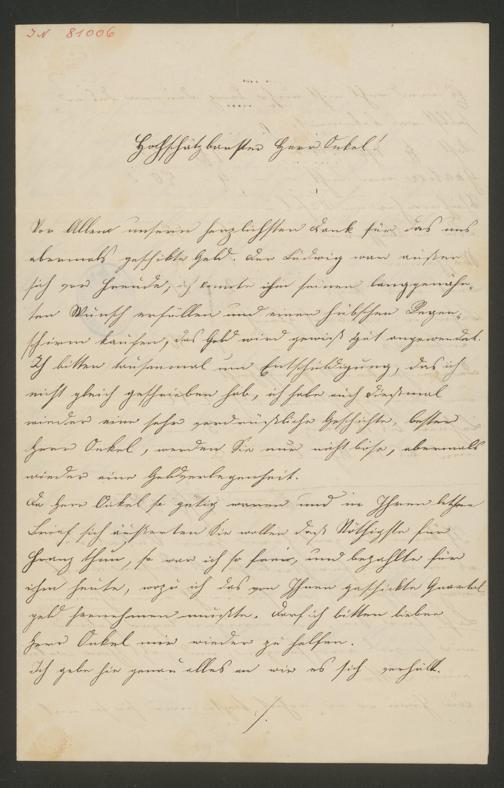 IN 81006
Hochschätzbarster Herr Onkel!
Vor Allem unsern herzlichsten Dank für das uns
abermals geschikte Geld. Der Ludwig war außer
sich vor Freude, ich konnte ihm seinen langgenähr-
ten Wunsch erfüllen und einen hübschen Regen-
schirm kaufen, das Geld wird gewiß gut angewendet.
Ich bitten tausenmal um Entschuldigung, daß ich
nicht gleich geschrieben hab, ich habe auch dießmal
wieder eine sehr verdrüßliche Geschichte, bester
Herr Onkel, werden Sie nur nicht böse, abermals
wieder eine Geldverlegenheit.
Da Herr Onkel so gütig waren und in Ihrem letzten
Brief sich äußerten Sie wollen daß Nöthigste für
Franz thun, so war ich so frei, und bezahlte für
ihn heute, wozu ich das von Ihnen geschikte Quartal
geld hernehmen mußte. Darf ich bitten lieber
Herr Onkel mir wieder zu helfen.
Ich gebe hir genau alles an wie es sich verhält.